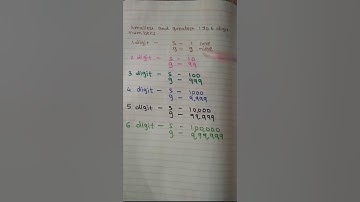 Smallest and greatest 1 to 6 digit
numbers
1 digit - S - 1 one
g - 9 nine
2 digit - S - 10
g - 99
3 digit - S - 100
g - 999
4 digit - S - 1000
g - 9,999
5 digit - S - 10,000
g - 99,999
6 digit - S - 1,00,000
g - 9,99,999